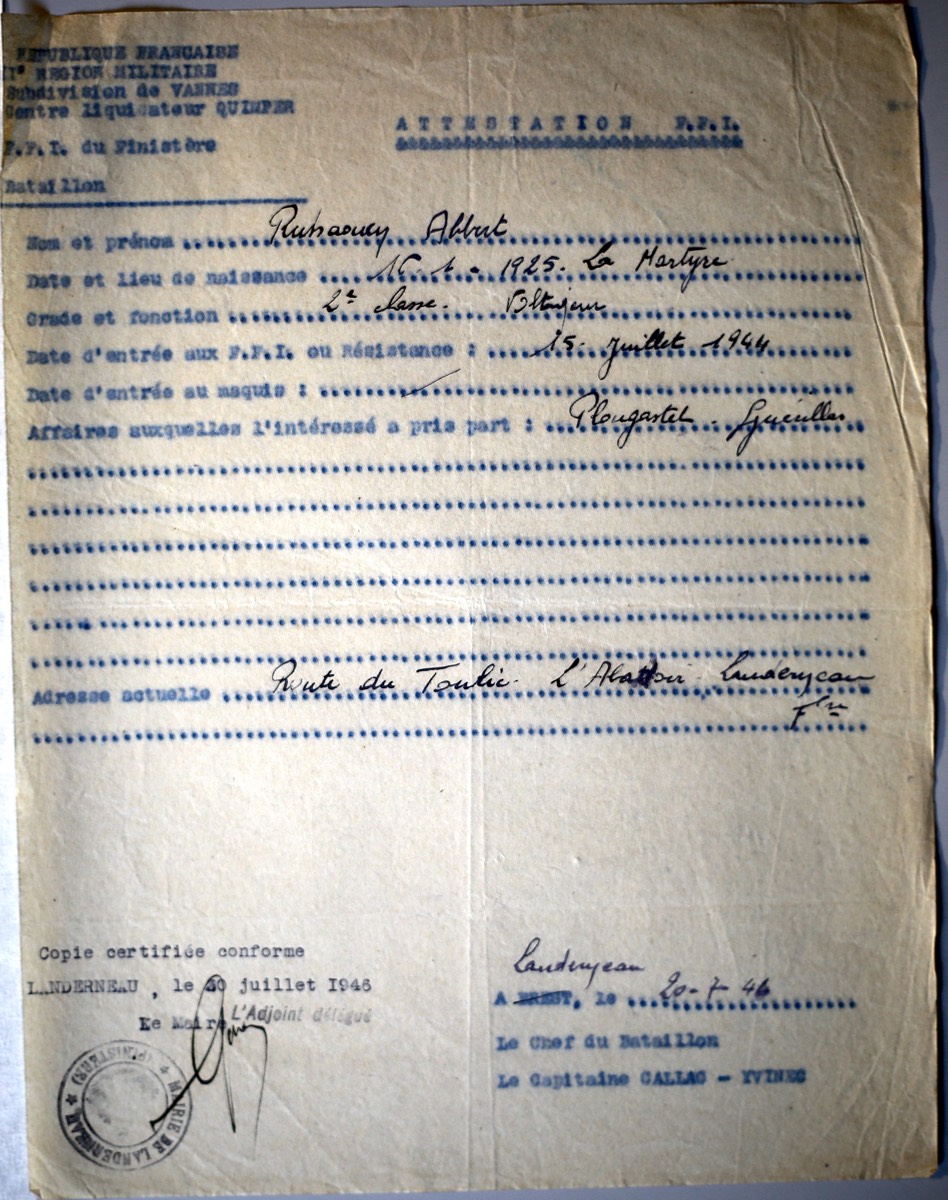 REPUBLIQUE FRANCAISE
REGION MILITAIRE
Subdivision de VANNES
Centre liquidateur QUIMPER
F.F.I. du Finistère
Bataillon
ATTESTATION F.F.I.
&&&&&&&&&&&&&&&&&&&&&&&&&&&&&&&
Nom et prénom ..... Albert
Date et lieu de naissance ... 1 - 1925. La Martyre
Grade et fonction ..... 2e classe. Voltigeur
Date d'entrée aux F.F.I. ou Résistance : ..... 15 juillet 1944
Date d'entrée au maquis : .....
Affaires auxquelles l'intéressé a pris part : ... Plougastel - Guérillas
Adresse actuelle ..... Route du Toulic. L'Abattoir. Landerneau
Fre
Copie certifiée conforme
LANDERNEAU, le 30 juillet 1946
Le Maire L'Adjoint délégué
MAIRIE DE LANDERNEAU * (FINISTERE) *
Landerneau
A BREST, le ..... 20-7-46
Le Chef du Bataillon
Le Capitaine CALLAC - YVINEC